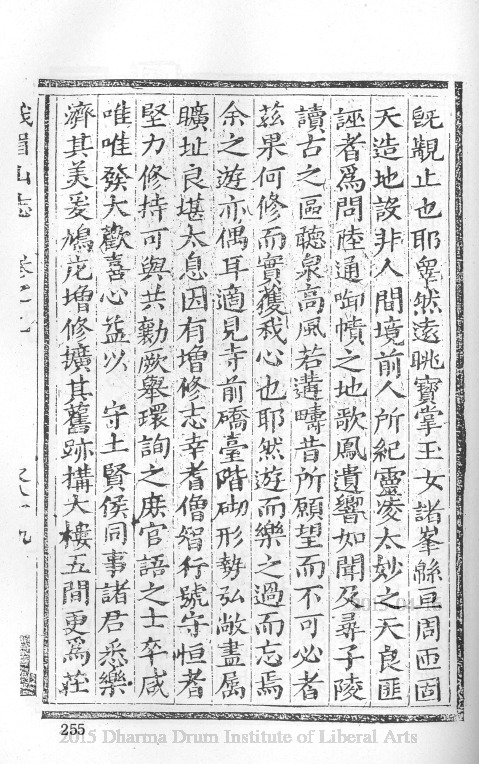 既觀止也耶睪然遠眺寶掌玉女諸峯緜亘周匝固
天造地設非人間境前人所紀靈凌太妙之天良匪
誣者爲問陸通啣幘之地歌鳳遺響如聞及尋子陵
讀古之區聽泉高風若遘疇昔所願望而不可必者
茲果何修而實獲我心也耶然游而樂之過而忘焉
余之游亦偶耳適見寺前礄臺階砌形勢弘敞盡屬
曠址良堪太息因有增修志幸者僧智行號守恒者
堅力修持可與共勷厥舉環詢之庶官語之士卒咸
唯唯發大歡喜心益以 守土賢侯同事諸君悉樂
濟其美爰鳩庀增修擴其舊跡搆大樓五間更爲莊
峨眉山志
255
2015 Dharma Drum Institute of Liberal Arts